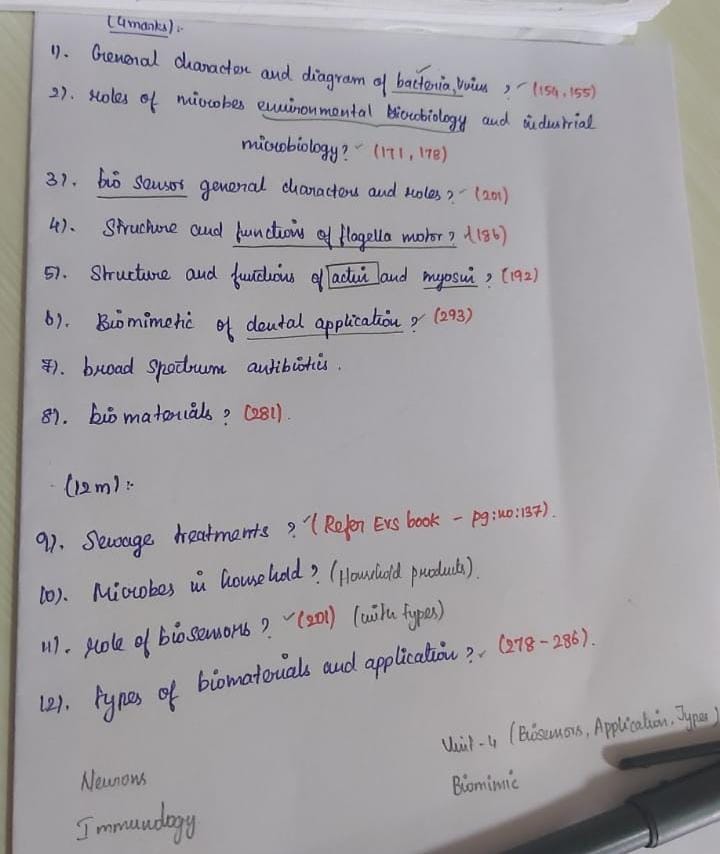 (4marks):-
1). General character and diagram of bacteria, Virus ? - (154, 155)
2). roles of microbes environmental Microbiology and industrial
microbiology? - (171, 178)
3). bio sensor general characters and roles ? - (201)
4). Structure and functions of flagella motor ? (186)
5). Structure and functions of actin and myosin ? (192)
6). Biomimetic of dental application ? (293)
7). broad spectrum antibiotics .
8). bio materials ? (281).
(12m):-
9). Sewage treatments ? (Refer EVS book - pg:no:137).
10). Microbes in household ? (Household products).
11). role of biosensors ? (201) (with types)
12). types of biomaterials and application ? (278 - 286).
Unit-4 (Biosensors, Application, Types)
Neurons
Biomimic
Immunology